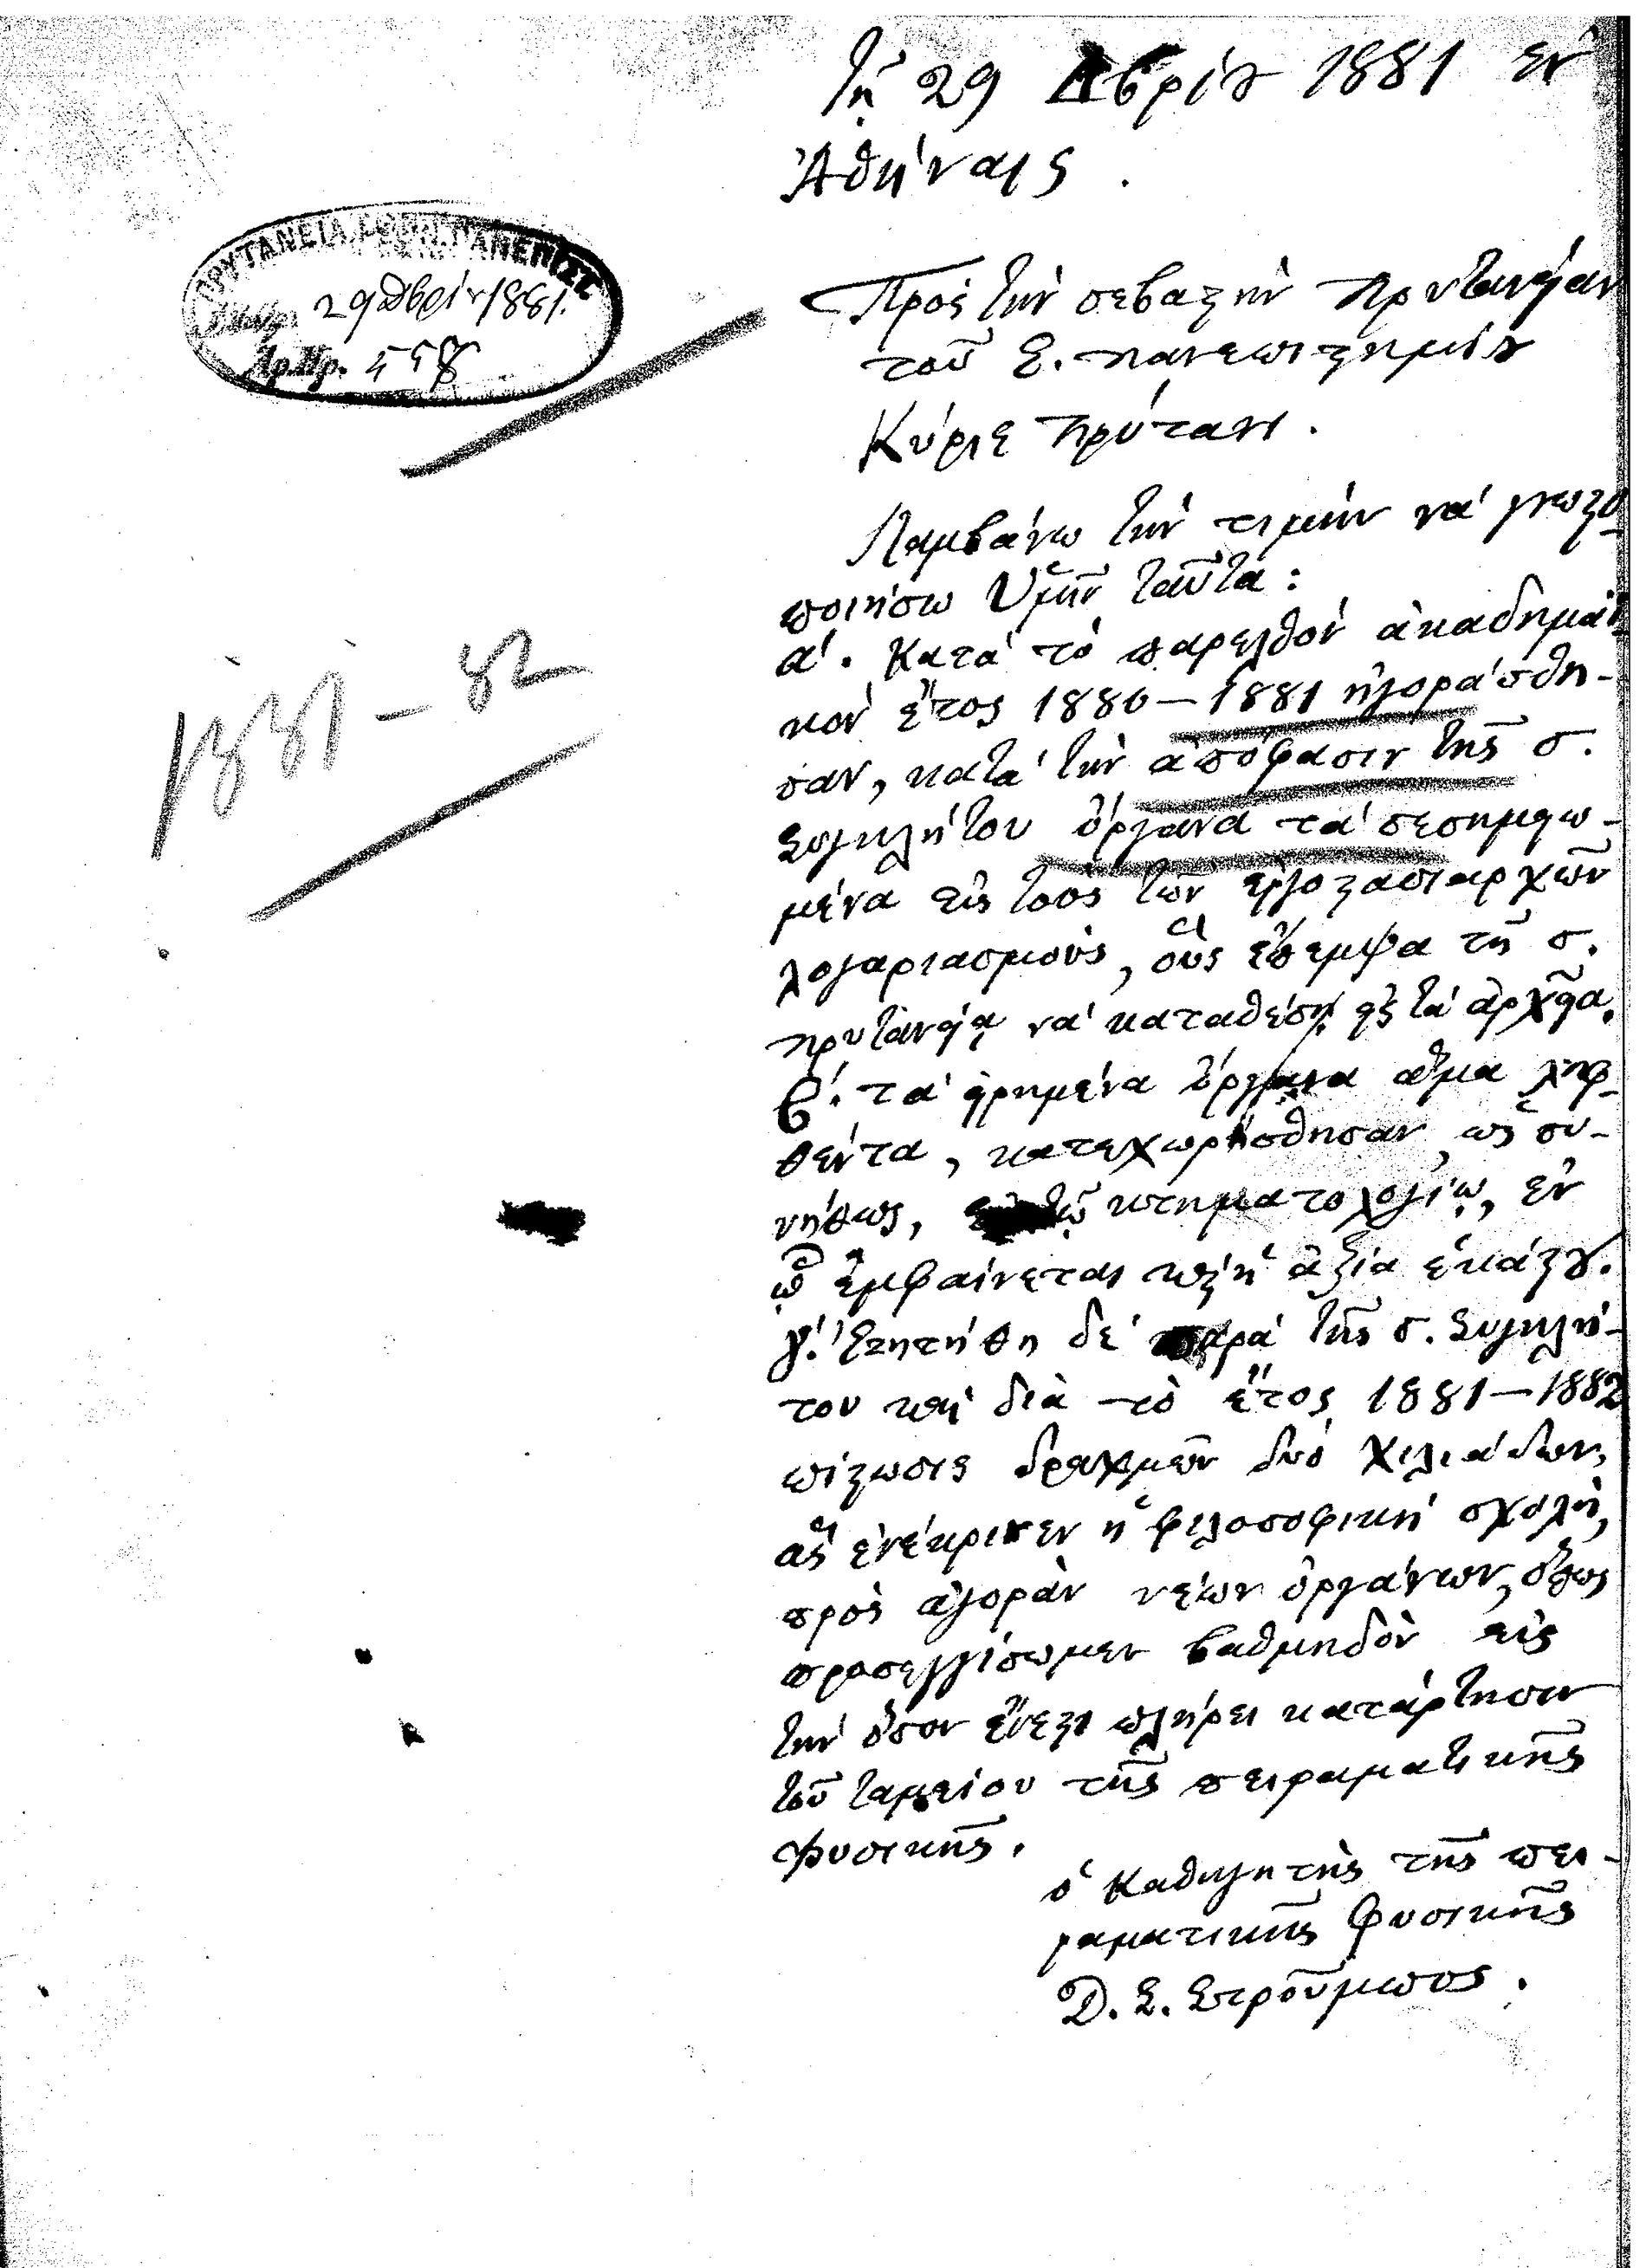 Τῇ 29 8βρίου 1881 ἐν
Ἀθήναις.
ΠΡΥΤΑΝΕΙΑ ΠΑΝΕΠΙΣΤ.
29 8βρίου 1881.
Αρ.Πρ. 558
Πρὸς τὴν σεβαστὴν πρυτανείαν
τοῦ Ἐ. πανεπιστημίου
Κύριε πρύτανι.
Λαμβάνω τὴν τιμὴν νὰ γνωστο-
ποιήσω Ὑμῖν ταῦτα:
α΄. Κατὰ τὸ παρελθὸν ἀκαδημαϊ-
κὸν ἔτος 1880–1881 ἠγοράσθη-
σαν, κατὰ τὴν ἀπόφασιν τῆς σ.
Συγκλήτου ὄργανα τὰ σεσημειω-
μένα εἰς τοὺς τῶν ἐργοστασιαρχῶν
λογαριασμούς, οὓς ἔπεμψα τῇ σ.
πρυτανείᾳ νὰ καταθέσῃ εἰς τὰ ἀρχεῖα.
1881–82
β΄. τὰ εἰρημένα ὄργανα ἅμα ληφ-
θέντα, κατεχωρίσθησαν, ὡς συ-
νήθως, ἐν τῷ κτηματολογίῳ, ἐν
ᾧ ἐμφαίνεται καὶ ἡ ἀξία ἑκάστου.
γ΄. Ἐζητήθη δὲ παρὰ τῆς σ. Συγκλή-
του καὶ διὰ τὸ ἔτος 1881–1882
πίστωσις δραχμῶν δύο χιλιάδων,
ἃς ἐνέκρινεν ἡ φιλοσοφικὴ σχολή,
πρὸς ἀγορὰν νέων ὀργάνων, ὅπως
προσεγγίσωμεν βαθμηδὸν εἰς
τὴν ὅσον ἔνεστι πλήρει κατάρτησιν
τοῦ ταμείου τῆς πειραματικῆς
φυσικῆς.
ὁ Καθηγητὴς τῆς πει-
ραματικῆς Φυσικῆς
Δ. Σ. Στροῦμπος.